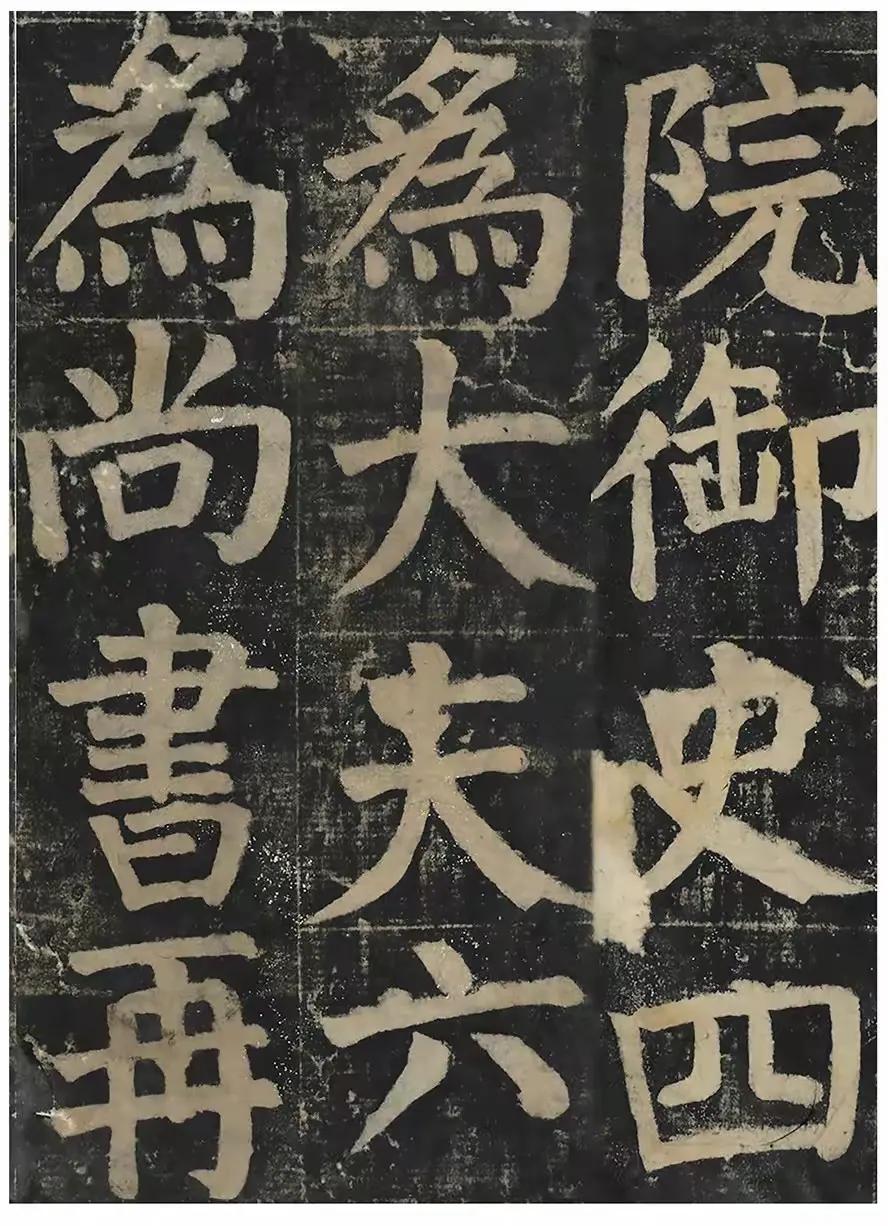 院御史四
為大夫六
為尚書再